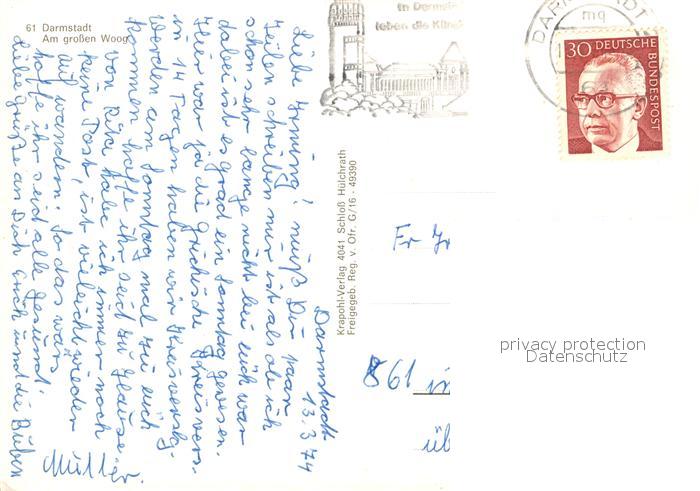 61 Darmstadt
Am großen Woog
Darmstadt
13.3.74
Liebe Irming! muß Dir paar
Zeilen schreiben mir ist als ob ich
schon sehr lange nicht bei euch war
dabei ist es grad ein Sonntag gewesen.
Hier war ja die
in 14 Tagen haben wir
werden am Sonntag mal zu euch
kommen hoffe ihr seid zu Hause.
von habe ich immer noch
keine Post, ist vieleicht wieder
auf wandern. So das wärs
hoffe ihr seid alle gesund.
liebe grüße an Dich euch und die Buben
Müller.
Krapohl-Verlag 4041 Schloß Hülchrath
Freigegeb. Reg. v. Ofr. G/16 - 49390
In Darmsta
leben die Küns
DARMSTADT
mq
30 DEUTSCHE
BUNDESPOST
Fr
861
üb
privacy protection
Datenschutz